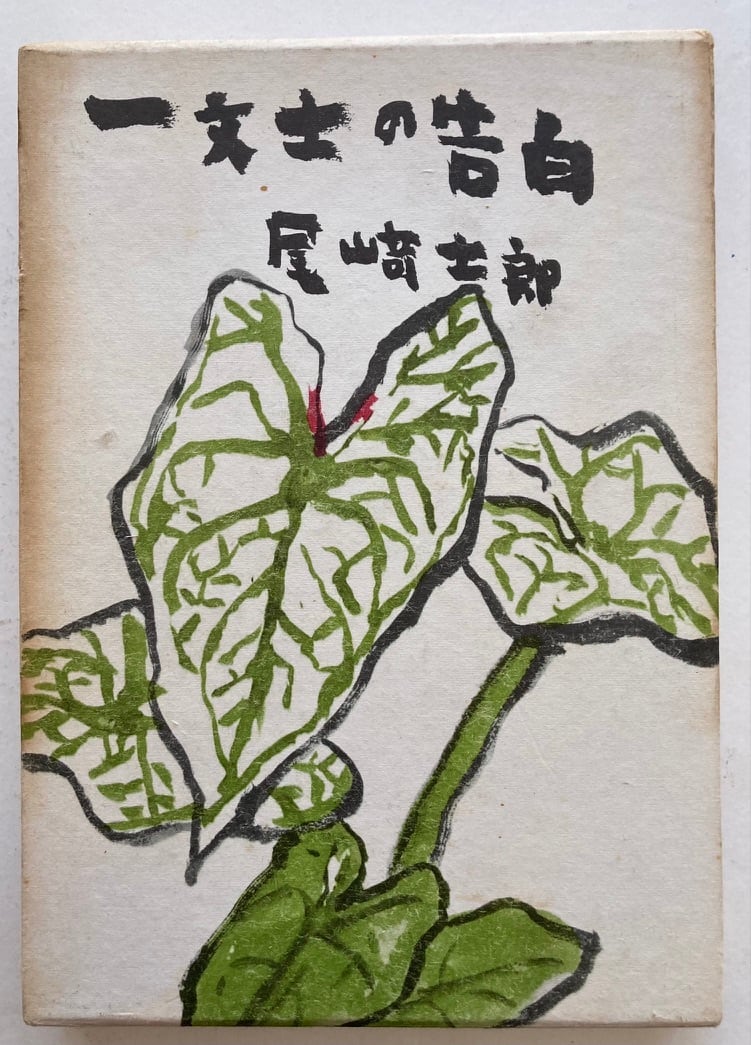 一文士の告白
尾崎士郎